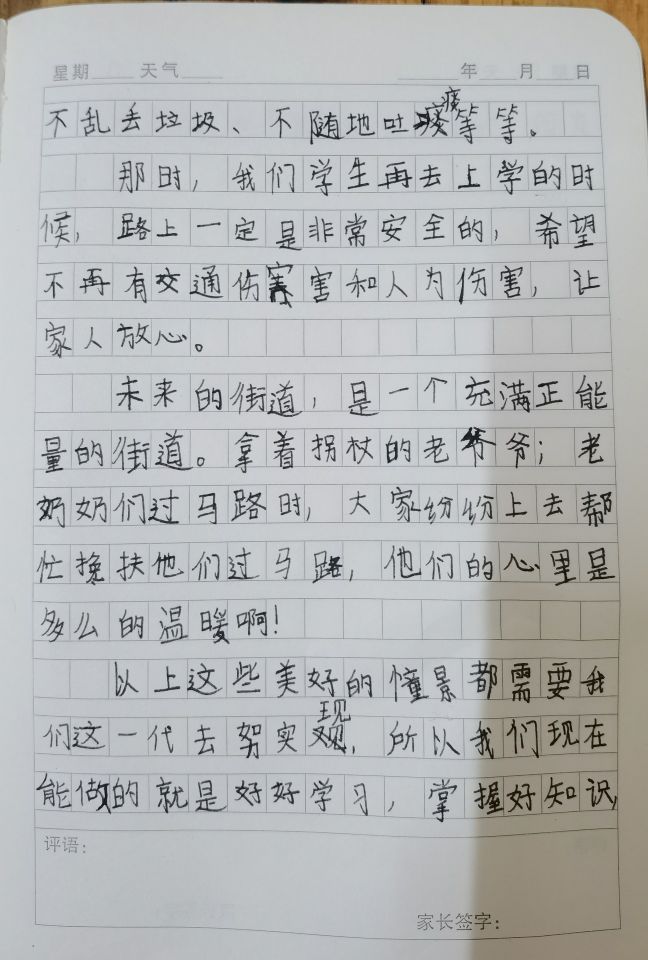 星期 天气 年 月 日
不乱丢垃圾、不随地吐痰等等。
那时，我们学生再去上学的时
候，路上一定是非常安全的，希望
不再有交通伤害和人为伤害，让
家人放心。
未来的街道，是一个充满正能
量的街道。拿着拐杖的老爷爷；老
奶奶们过马路时，大家纷纷上去帮
忙搀扶他们过马路，他们的心里是
多么的温暖啊！
以上这些美好的憧景都需要我
们这一代去努实现，所以我们现在
能做的就是好好学习，掌握好知识，
评语：
家长签字：